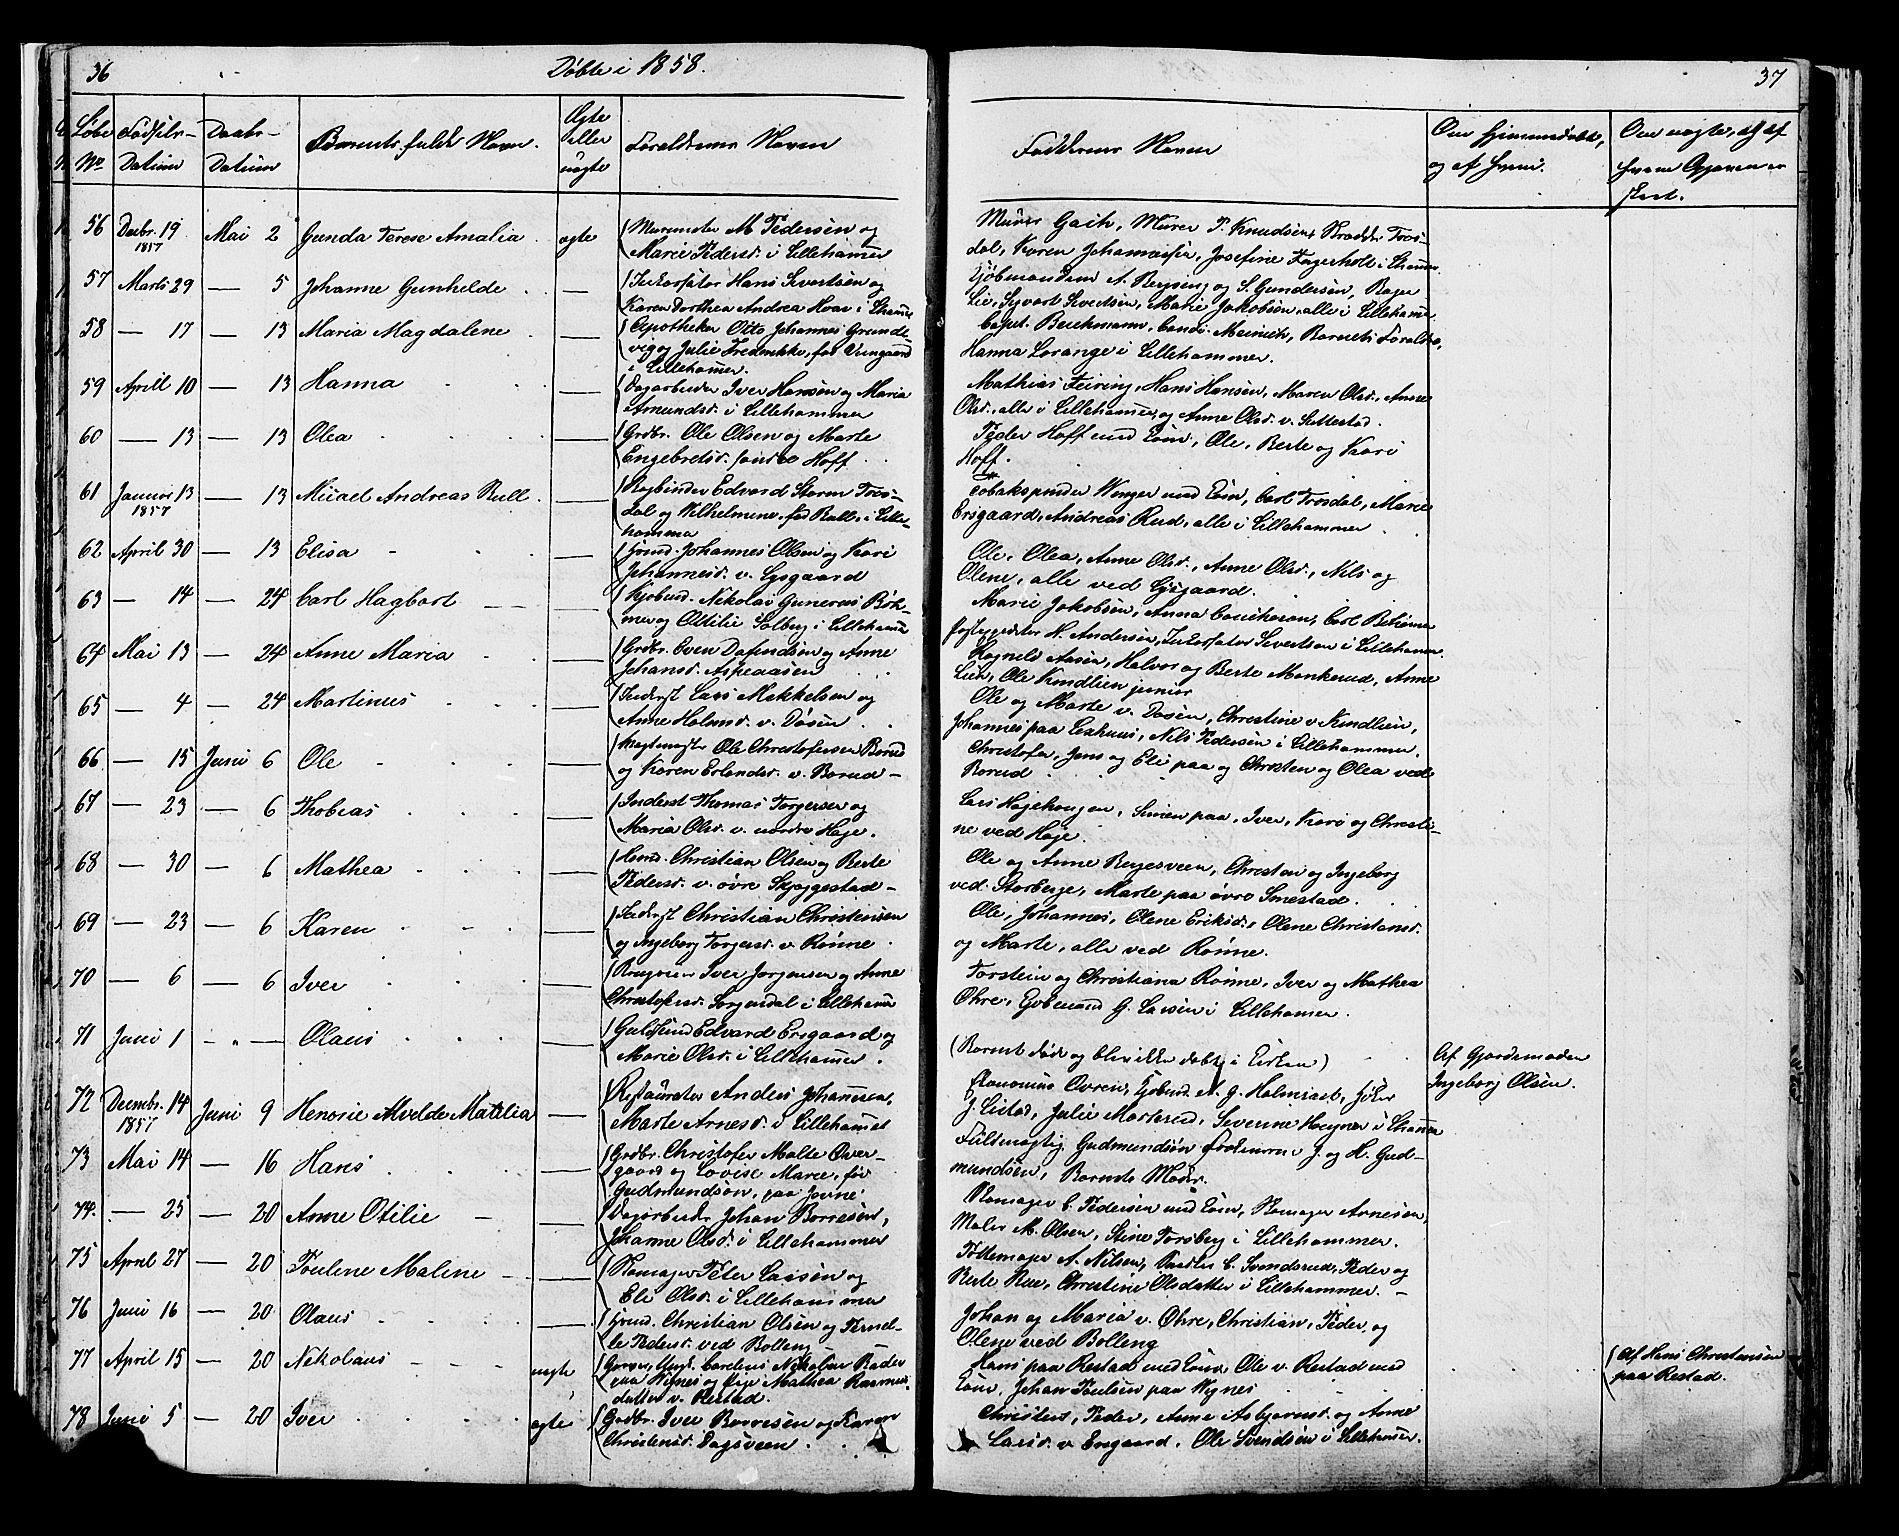 36
Døbte i 1858.
37
Løbe No
Fødsels-Datum
Daabs-Datum
Barnets fulde Navn.
Ægte eller uægte
Forældrenes Navne
Faddernes Navne
Om Hjemmedøbte, og af hvem.
Om uægte, af hvem Opgaven er skeet.
56 Decbr. 19 1857 Mai 2 Gunda Terese Amalia ægte Murmester M Pedersen og
Marie Pedersd. i Lillehamer
Murer Gaih, Murer P. Knudsen, Trosdal, Karen Johannesen, Josefine Fagerholt i Lhamer
57 Marts 29 — 5 Johanne Gunhilde — Hans Severtsen og
Karen Dorthea Andrea Hoar i Lhamer
Kjøbmændene A. Bergseng og S. Gundersen, Bager
Lie, Syvert Severtsen, Marie Jakobsen, alle i Lillehamer
58 — 17 — 13 Maria Magdalene — Apotheker Otto Johannes Grundevig og Julie Fredrikke, fød
i Lillehamer
Capt. Beichmann, Cand. Meinich, Barnets Forældre,
Hanna Lorange i Lillehammer.
59 Aprill 10 — 13 Hanna — Dagarbeider Iver Hansen og Maria
Amundsd. i Lillehammer
Mathias Feiring, Hans Hansen, Maren Olsd., Anne
Olsd., alle i Lillehamer, og Anne Olsd. v. Suttestad.
60 — 13 — 13 Olea — Grdbr. Ole Olsen og Marte
Engebretsd. søndre Hoff
Peder Hoff med Kone, Ole, Berte og Kari
Hoff.
61 Januar 13 1857 — 13 Micael Andreas Bull — Bogbinder Edvard Storm Trosdal og Wilhelmine, fød Bull, i Lillehammer
Tobakspinder Wenger med Kone, Carl Trosdal, Marie
Ersgaard, Andreas Rud, alle i Lillehammer
62 April 30 — 13 Elisa — Huusd. Johannes Olsen og Kari
Johannesd. v. Lysgaard
Ole, Olea, Anne Olsd., Anne Olsd., Nils og
Olene, alle ved Lysgaard.
63 — 14 — 24 Carl Hagbart — Kjøbmd. Nikolai Gunerius Bøhmer og Ottilie Solberg i Lillehamer
Marie Jakobsen, Anna Carl Bøhmer
H. Andersen, Severtsen i Lillehamer.
64 Mai 13 — 24 Anne Maria — Grdbr. Even Dafindsen og Anne
Johansd. Aspeaasen
Aasen, Halvor og Berte Monkerud, Anne
Lien, Ole Kindlien junior
65 — 4 — 24 Martinus — Inderst Lars Mikkelsen og
Anne Halvorsd. v. Døsen
Ole og Marte v. Døsen, Christine v. Kindlien,
Johannes paa Nils Pedersen i Lillehammer.
66 — 15 Juni 6 Ole — Ole Christofersen Borud
og Karen Erlandsd. v. Borud
Christofer, Jens og Eli paa og Christen og Olea ved
Borud
67 — 23 — 6 Thobias — Inderst Thomas Torgersen og
Maria Olsd. v. nordre Høje.
Lars Højehaugen, Simen paa, Iver, Kari og Christine ved Høje
68 — 30 — 6 Mathea — Huusd. Christian Olsen og Berte
Pedersd. v. øvre Skjeggestad
Ole og Anne Bergesveen, Christian og Ingeborg
ved Storberge, Marte paa øvre Smestad.
69 — 23 — 6 Karen — Inderst Christian Christensen
og Ingeborg Torgersd. v. Rønne
Ole, Johannes, Olene Eriksd., Olene Christiansd.
og Marte, alle ved Rønne.
70 — 6 — 6 Iver — Iver Jørgensen og Anne
Christofersd. Sorgendal i Lillehamer
Torstein og Christiana Rønne, Iver og Mathea
Ohre, Kjøbmand G. Larsen i Lillehamer.
71 Juni 1 - „ — Olaus — Guldsmd Edvard Ersgaard og
Marie Olsd. i Lillehammer
(Barnet døde og blev ikke døbt i Kirken)
Af Gjordemoder
Ingeborg Olsen.
72 Decembr. 14 1857 Juni 9 Henorie Alvilde Matilia — Restauratør Anders Johannesen,
Marte Arnesd. i Lillehamer
Økonomus Owren, Kjøbmd. A. G. Holmsæt,
J. Listad, Julie Morterud, Severine i Lhamer
73 Mai 14 — 16 Hans — Grdbr. Christofer Malte Overgaard og Lovise Marie, fød
Gudmundsøn, paa Jovne
Fuldmægtig Gudmundsøn J. og H. Gudmundsøn, Barnets Moder.
74. — 25 — 20 Anne Otilie — Dagarbeider Johan Borresen,
Johanne Olsd. i Lillehammer
Skomager C. Pedersen med Kone, Skomager Arnesen,
Maler M. Olsen, Stine Forsberg i Lillehammer.
75 April 27 — 20 Pouline Maline — Skomager Peter Larsen og
Eli Olsd. i Lillehammer
Pottemager A. Nilsen, C. Svenderud, Peder og
Berte Rue, Christine Olsdatter i Lillehammer.
76 Juni 16 — 20 Olaus — Huusd. Christian Olsen og Pernelle Pedersd. ved Bolleng
Johan og Maria v. Ohre, Christian, Peder, og
Olene ved Bolleng
77 April 15 — 20 Nikolaus — uægte Carelius Nikolai
paa Wignes og Pige Mathea Rasmusdatter v. Restad.
Hans paa Restad med Kone, Ole v. Restad med
Kone, Johan Poulsen paa Wignes
Af Hans Christensen
paa Restad.
78 Juni 5 — 20 Iver ægte Grdbr. Iver Borresen og Karen
Christensd. Dagsveen
Christen, Peder, Anne Asbjørnsd. og Anne
Larsd. v. Ersgaard, Ole Svendsen i Lillehamer.